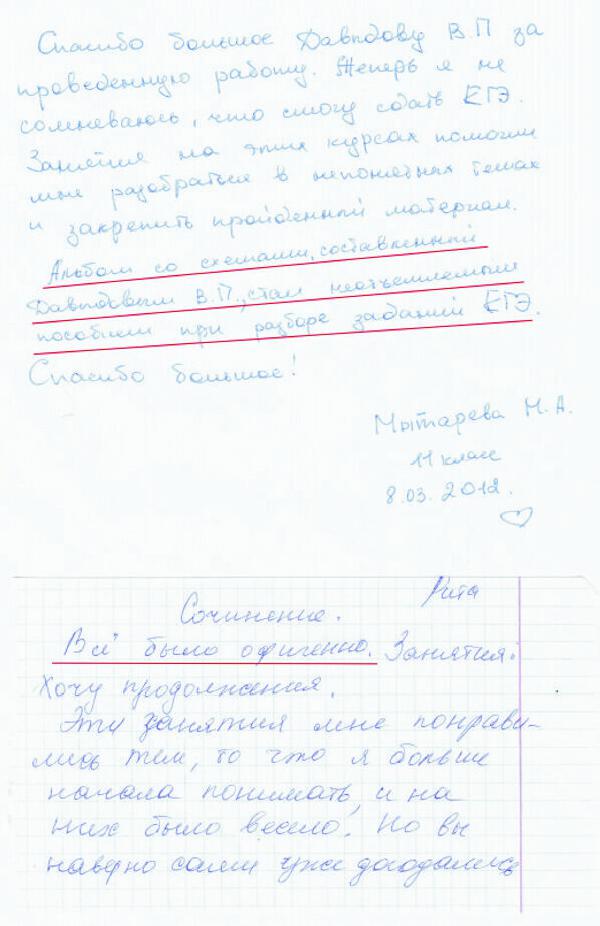 Спасибо большое Давыдову В.П за
проведенную работу. Теперь я не
сомневаюсь, что смогу сдать ЕГЭ.
Занятия на этих курсах помогли
мне разобраться в непонятных темах
и закрепить пройденный материал.
Альбом со схемами, составленный
Давыдовым В.П., стал неотъемлемым
пособием при разборе заданий ЕГЭ.
Спасибо большое!
Мытарева М.А.
11 класс
8.03.2012.
Рита
Сочинение.
Всё было офигенно. Занятия.
Хочу продолжения.
Эти занятия мне понрави-
лись тем, то что я больше
начала понимать, и на
них было весело. Но вы
наверно сами уже догодались